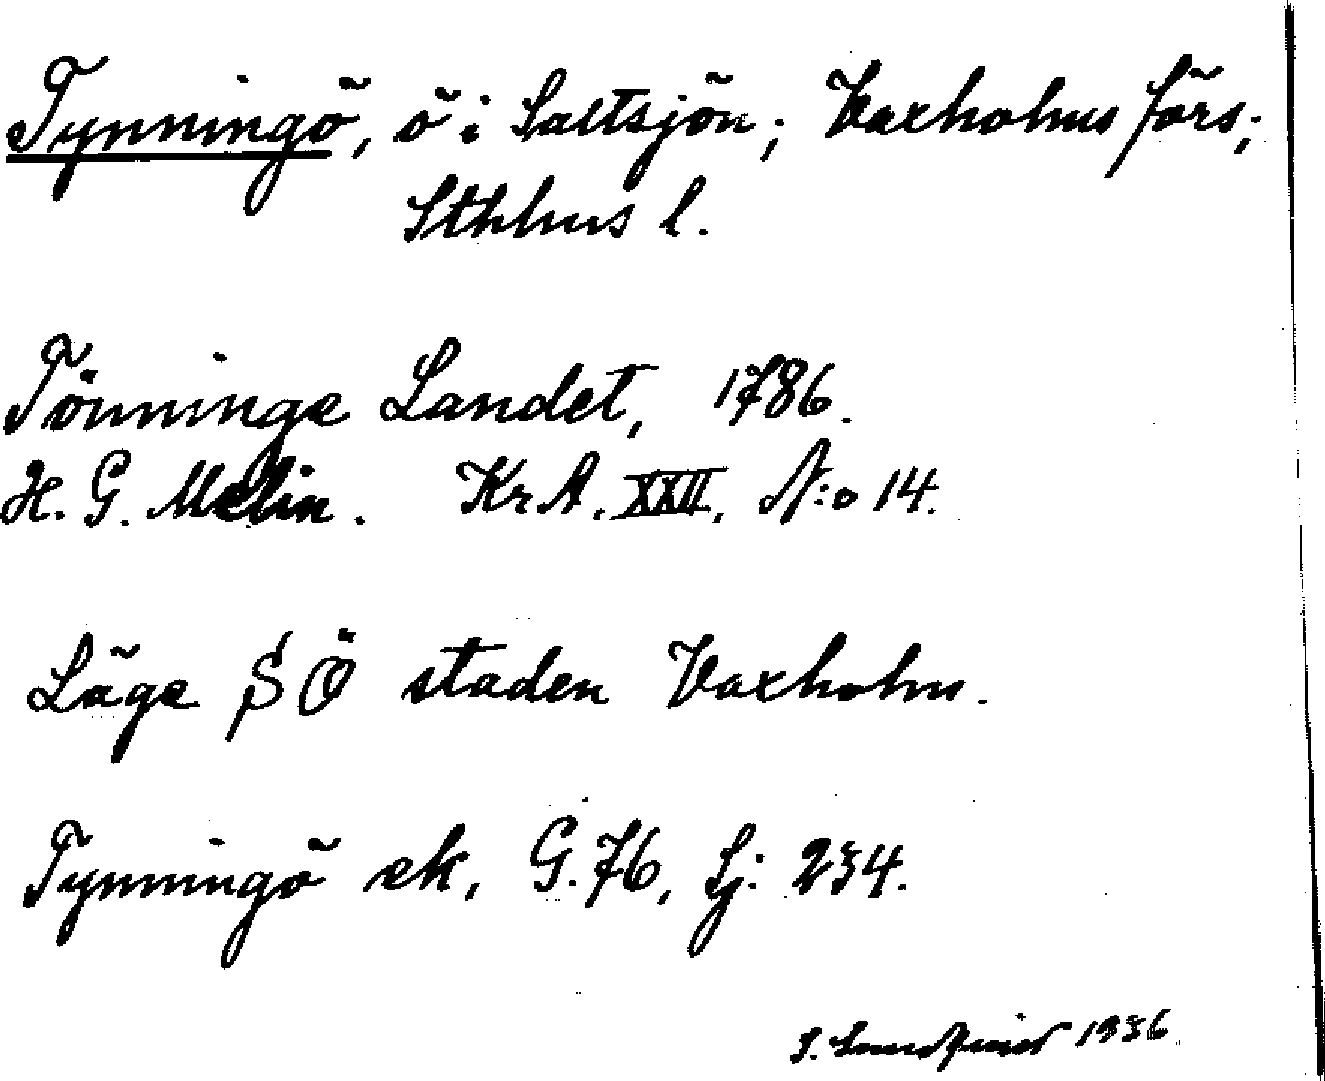 Tynningö, ö i Saltsjön; Vaxholms förs;
Sthlms l.
Tönninge Landet, 1786.
H. G. Melin. Kr A. XXII. N:o 14.
Läge SÖ staden Vaxholm.
Tynningö ek, G. 76, Lj: 234.
1936